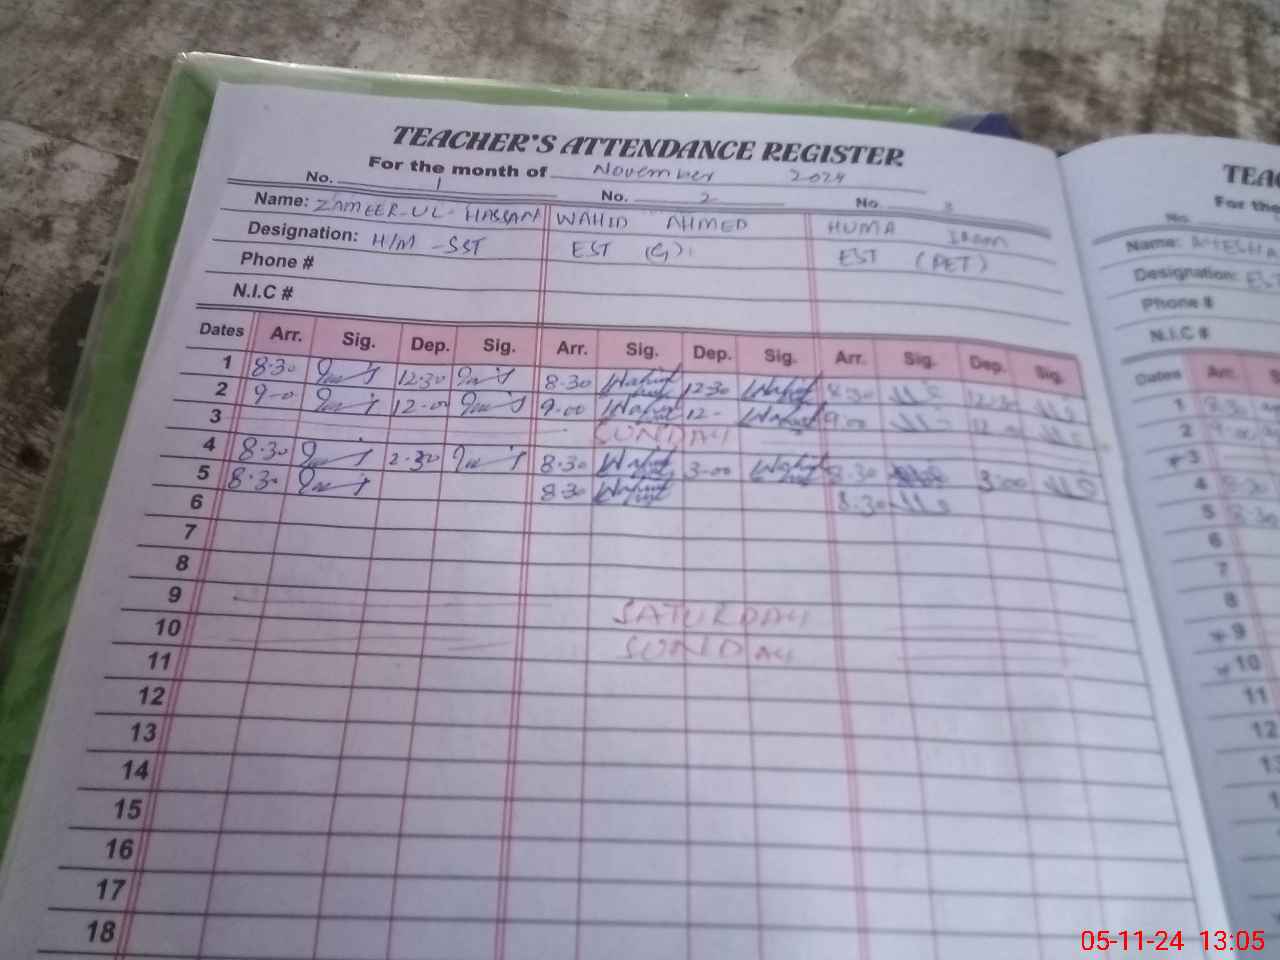 TEACHER'S ATTENDANCE REGISTER
For the month of November 2024
No. 1 No. 2 No. 3
Name: ZAMEER-UL-HASSAN WAHID AHMED HUMA
Designation: H/M -SST EST (G) EST (PET)
Phone #
N.I.C #
Dates Arr. Sig. Dep. Sig. Arr. Sig. Dep. Sig. Arr. Sig. Dep. Sig.
1 8.30 12.30 8.30 Wahid 12.30 Wahid 8.30 12.30
2 9-0 12.00 9.00 Wahid 12- Wahid 9.00
3 SUNDAY
4 8.30 2.30 8.30 Wahid 3.00 Wahid 8.30 3.00
5 8.30 8.30 Wahid 8.30
6
7
8
9 SATURDAY
10 SUNDAY
11
12
13
14
15
16
17
18
TEAC
For the
No.
Name: AYESHA
Designation: EST
Phone #
N.I.C #
Dates Arr. S
1 8.30
2 9.00
*3
4 8.30
5 8.30
6
7
8
*9
*10
11
12
05-11-24 13:05